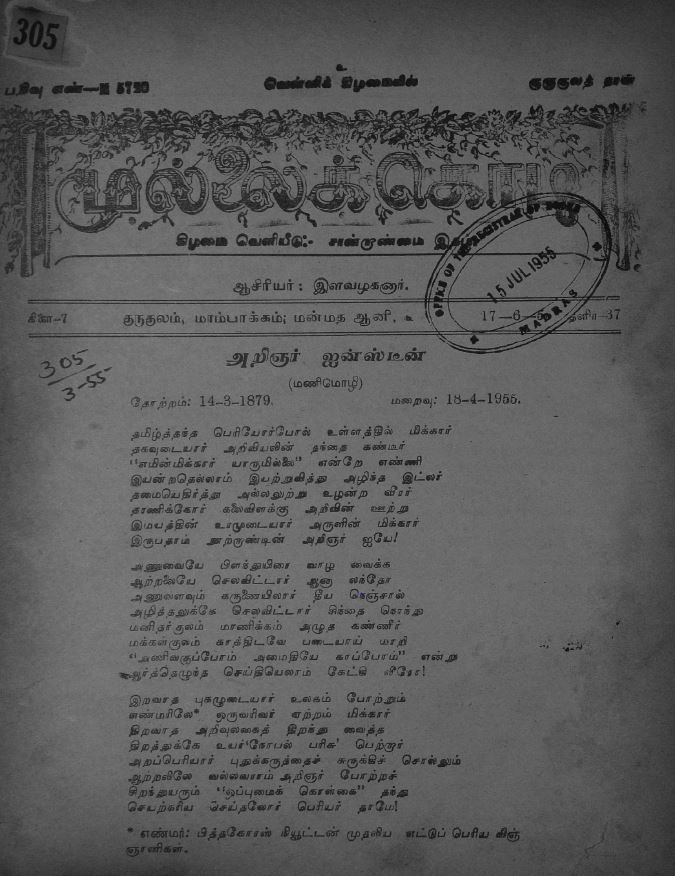 305
உ
பதிவு எண்—M 5720 வெள்ளிக் கிழமையில் குருகுலத் தான்
முல்லைக்கொடி
கிழமை வெளியீடு:- சான்றாண்மை இதழ்
OFFICE OF THE REGISTRAR OF BOOKS
15 JUL 1955
MADRAS
ஆசிரியர் : இளவழகனார்.
கிளை-7 குருகுலம், மாம்பாக்கம்; மன்மத ஆனி, 17-6-55 தளிர்-37
305
3-55
அறிஞர் ஐன்ஸ்டீன்
(மணிமொழி)
தோற்றம்: 14-3-1879. மறைவு: 18-4-1955.
தமிழ்த்தந்த பெரியோர்போல் உள்ளத்தில் மிக்கார்
தகவுடையார் அறிவியலின் தந்தை கண்டீர்
"எமின்மிக்கார் யாருமில்லை" என்றே எண்ணி
இயன்றதெல்லாம் இயற்றுவித்து அழிந்த இட்லர்
தமையெதிர்த்து அல்லலுற்று உழன்ற வீரர்
தாணிக்கோர் கலைவிளக்கு அறிவின் ஊற்று
இமயத்தின் உரமுடையார் அருளின் மிக்கார்
இருபதாம் நூற்றாண்டின் அறிஞர் ஐயே!
அணுவையே பிளந்துயிரை வாழ வைக்க
ஆற்றலையே செலவிட்டார் ஆனா லந்தோ
அணுவளவும் கருணையிலார் தீய நெஞ்சால்
அழித்தலுக்கே செலவிட்டார் சிந்தை நொந்து
மனிதர்குலம் மாணிக்கம் அழுத கண்ணீர்
மக்கள்குலம் காத்திடவே படையாய் மாறி
"அணிவகுப்போம் அமைதியே காப்போம்" என்று
ஆர்த்தெழுந்த செய்தியெலாம் கேட்கி லீரோ!
இறவாத புகழுடையார் உலகம் போற்றும்
எண்மரிலே* ஒருவரிவர் ஏற்றம் மிக்கார்
திறவாத அறிவுலகைத் திறந்து வைத்த
திறத்துக்கே உயர்'நோபல் பரிசு' பெற்றார்
அறப்பெரியார் புதுக்கருத்தைச் சுருக்கிச் சொல்லும்
ஆற்றலிலே வல்லவராம் அறிஞர் போற்றச்
சிறந்துயரும் "ஒப்புமைக் கொள்கை" தந்து
செயற்கரிய செய்தலோர் பெரியர் தாமே!
* எண்மர்: பித்தகோரஸ் நியூட்டன் முதலிய எட்டுப் பெரிய விஞ்
ஞானிகள்.